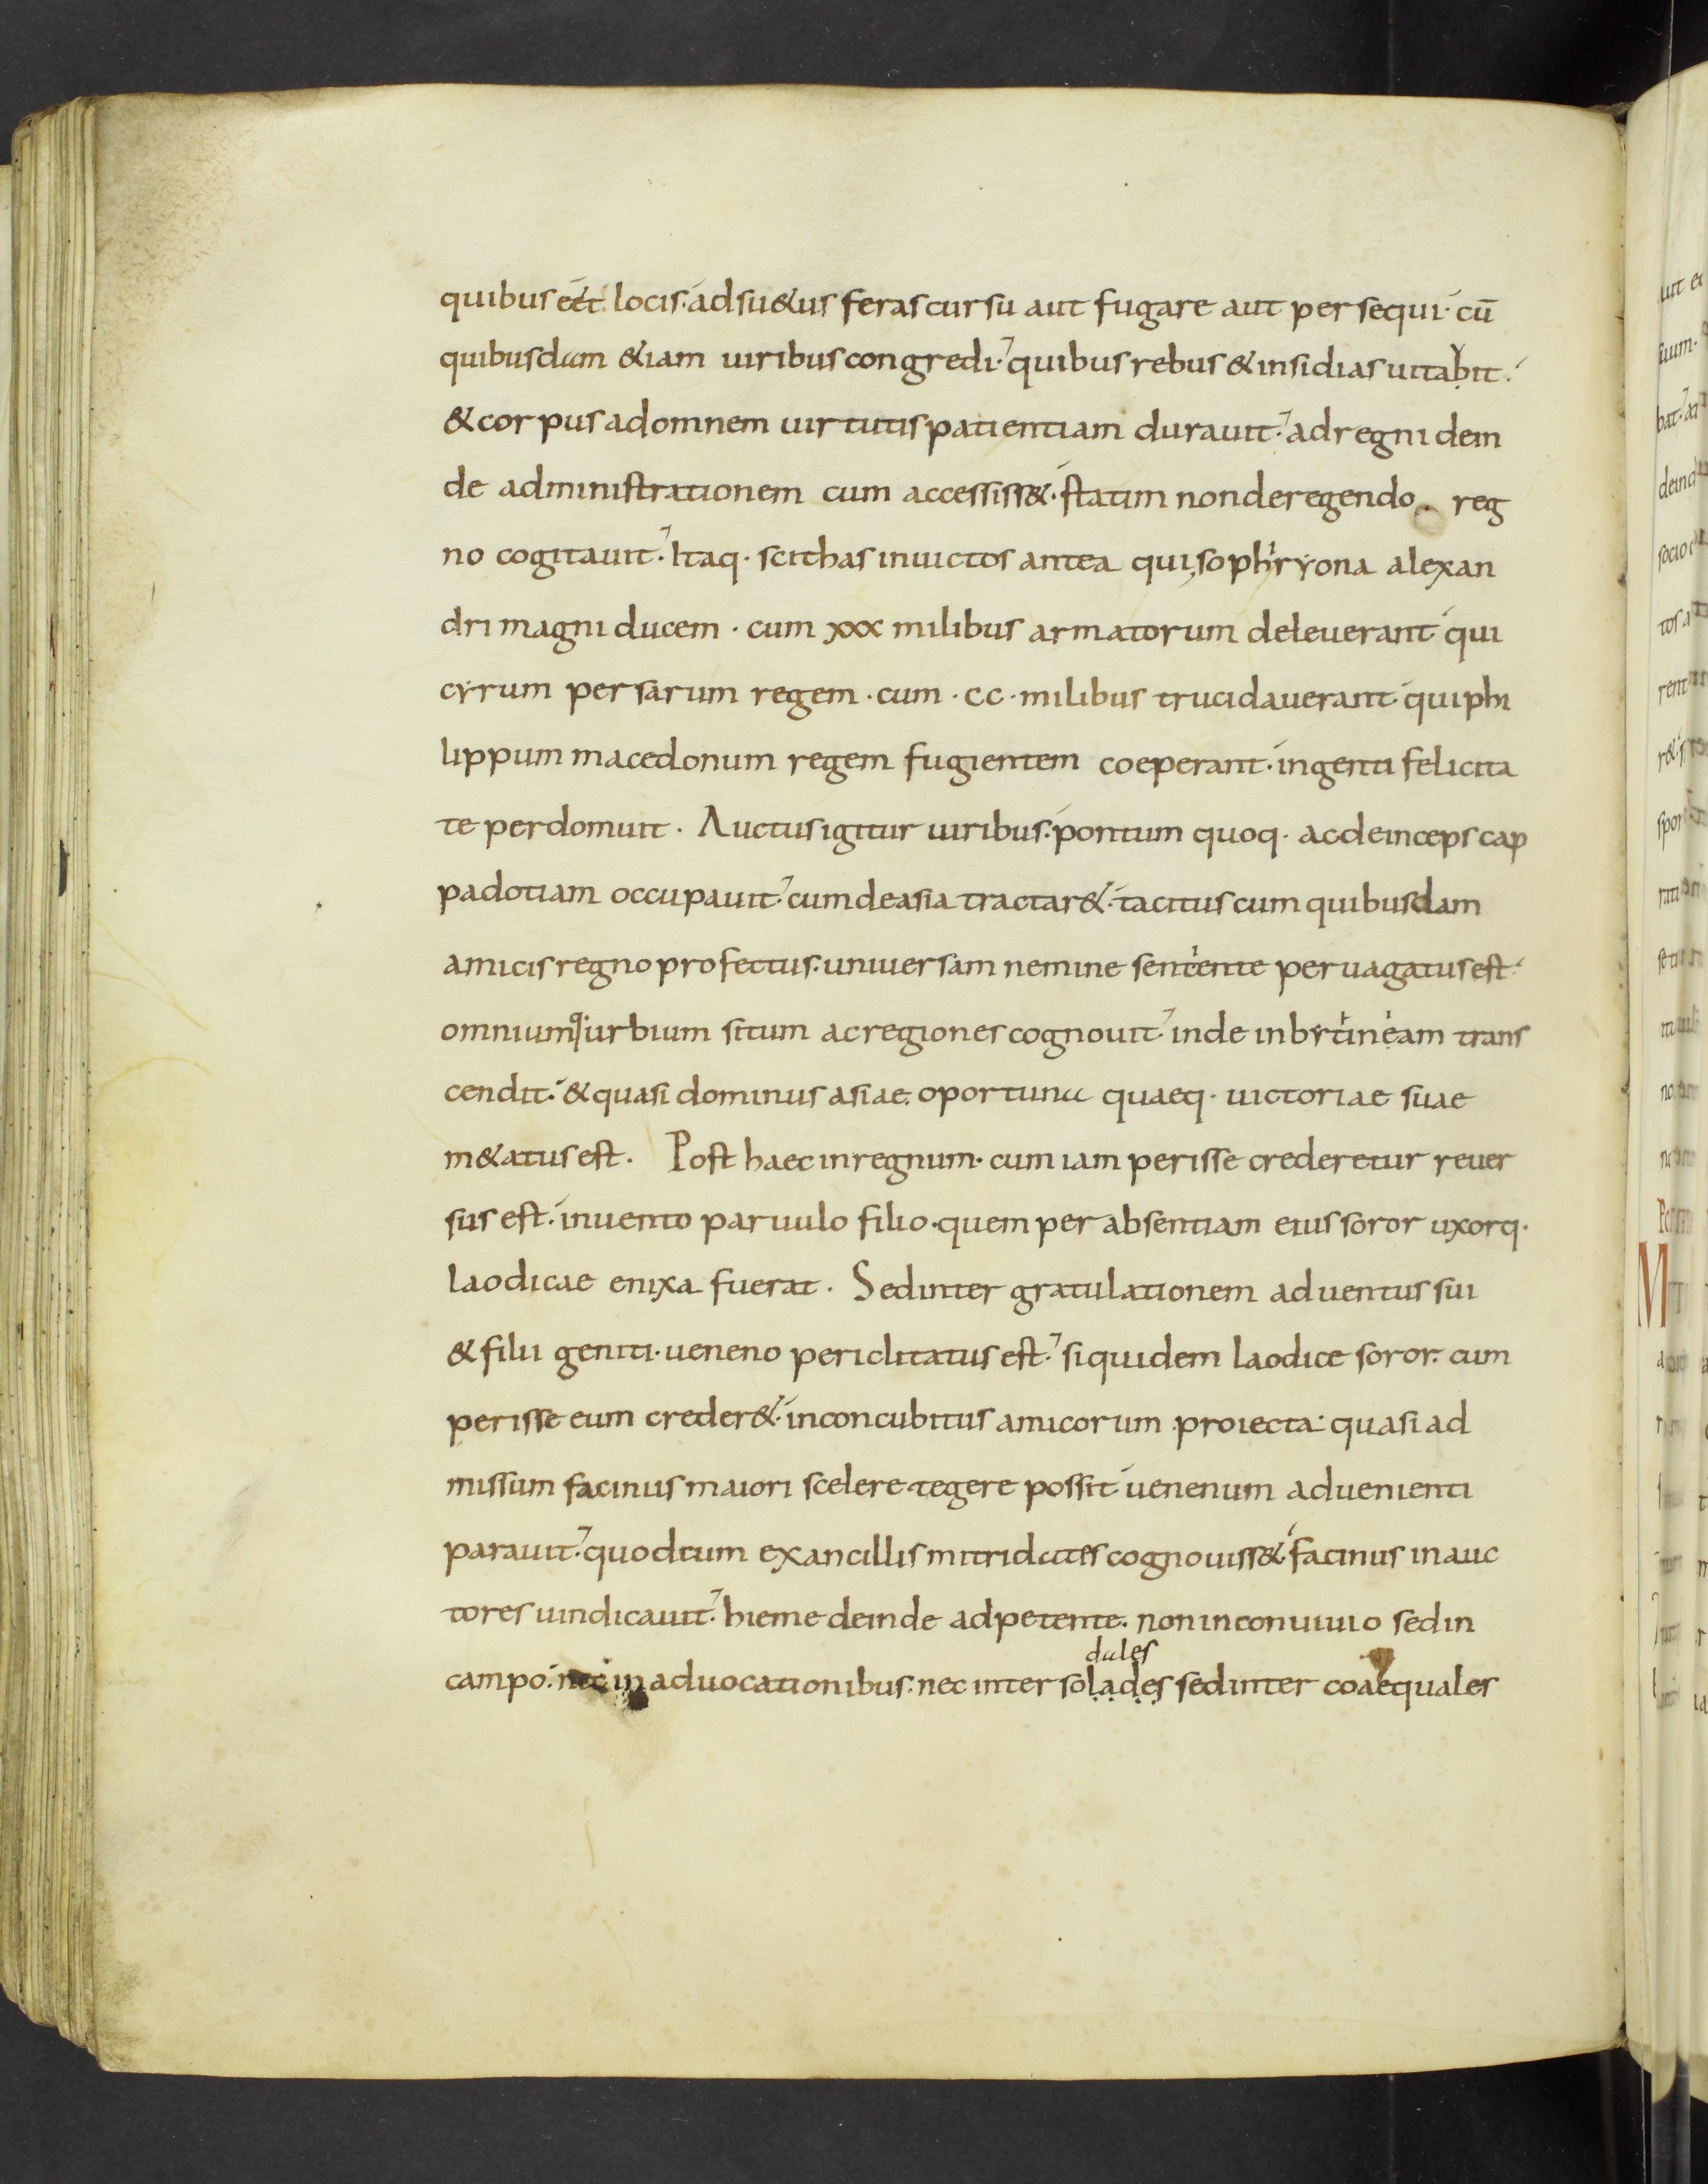 quibus eét locis. adsu&us feras cursu aut fugare aut persequi. cū
quibusdam &iam uiribus congredi. quibus rebus & insidias uitabit.
& corpus ad omnem uirtutis patientiam durauit. ad regni dein
de administrationem cum accessiss&. statim non de regendo. reg
no cogitauit. Itaq. scithas inuictos antea qui sophiryona alexan
dri magni ducem. cum xxx milibus armatorum deleuerant qui
cyrum persarum regem. cum. cc. milibus trucidauerant. qui phi
lippum macedonum regem fugientem coeperant. ingenti felicita
te perdomuit. Auctus igitur uiribus. pontum quoq. ac deinceps cap
padotiam occupauit. cum de asia tractar&. tacitus cum quibusdam
amicis regno profectus. uniuersam nemine sentiente peruagatus est.
omniumq; urbium situm ac regiones cognouit. inde in bytineam trans
cendit. & quasi dominus asiae. oportuna quaeq. uictoriae suae
m&atus est. Post haec in regnum. cum iam perisse crederetur reuer
sus est. inuento paruulo filio. quem per absentiam eius soror uxorq.
laodicae enixa fuerat. Sed inter gratulationem aduentus sui
& filii geniti. ueneno periclitatus est. siquidem laodice soror. cum
perisse eum creder&. in concubitus amicorum proiecta. quasi ad
missum facinus maiori scelere tegere possit uenenum aduenienti
parauit. quod tum ex ancillis mitridates cognouiss&. facinus in auc
tores uindicauit. hieme deinde adpetente. non in conuiuio sed in
dales
campo. nec in aduocationibus. nec inter solades sed inter coaequales